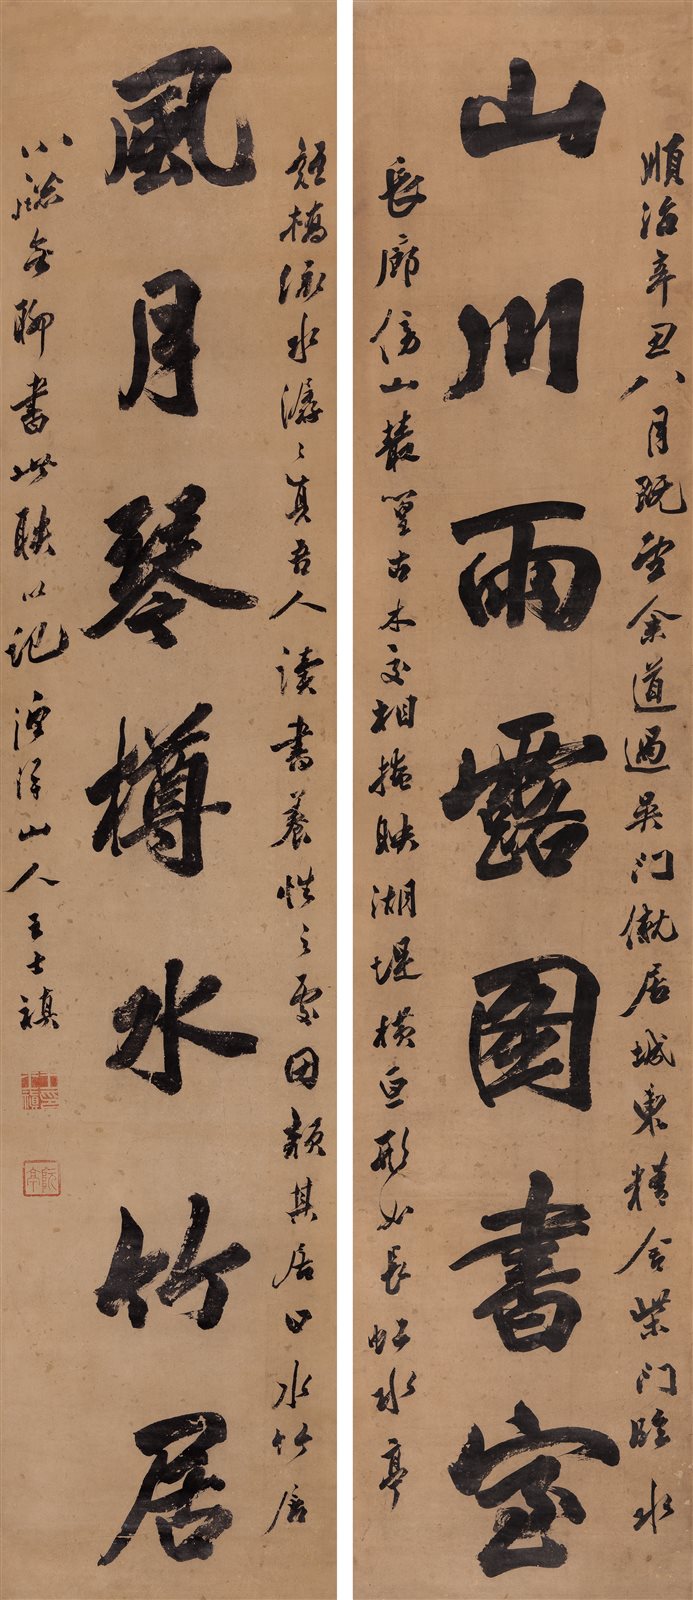 順治辛丑八月既望余道過吳門僦居城東精舍柴門臨水
山川雨露圖書室
長廊傍山叢篁古木交相掩映湖堤橫亘形如長虹水亭
短橋流水潺〻真吾人讀書養性之處因顏其居曰水竹居
風月琴樽水竹居
小憩無聊書此聯以記 漁洋山人王士禛